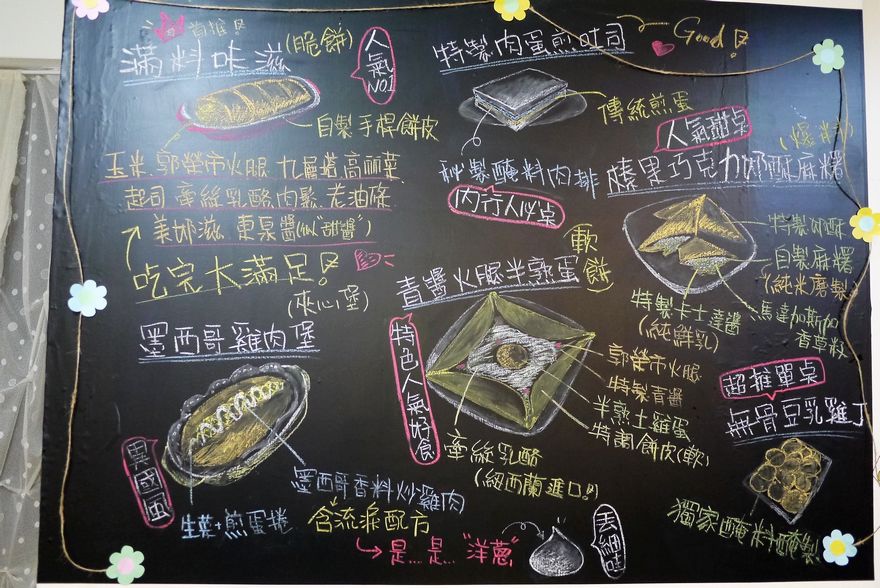 首推
滿料味滋
(脆餅)
人氣NO1
自製手桿餅皮
玉米.郭榮市火腿.九層塔.高麗菜
起司.牽絲乳酪.肉鬆.老油條
美奶滋.東泉醬(似"甜醬")
吃完大滿足!
特製肉蛋煎吐司
Good
傳統煎蛋
秘製醃料肉排
內行人必点
人氣甜点
榛果巧克力奶酥麻糬
特製奶酥
自製麻糬
(純米磨製)
馬達加斯加
香草籽
特製卡士達醬
(純鮮乳)
(夾心堡)
墨西哥雞肉堡
異國風
生菜+煎蛋捲
墨西哥香料炒雞肉
含流淚配方
是...是..."洋蔥"
青醬火腿半熟蛋
軟餅
特色人氣好食
郭榮市火腿
特製青醬
半熟土雞蛋
特調餅皮(軟)
牽絲乳酪
(紐西蘭進口!)
超推單点
無骨豆乳雞丁
獨家醃料醃製